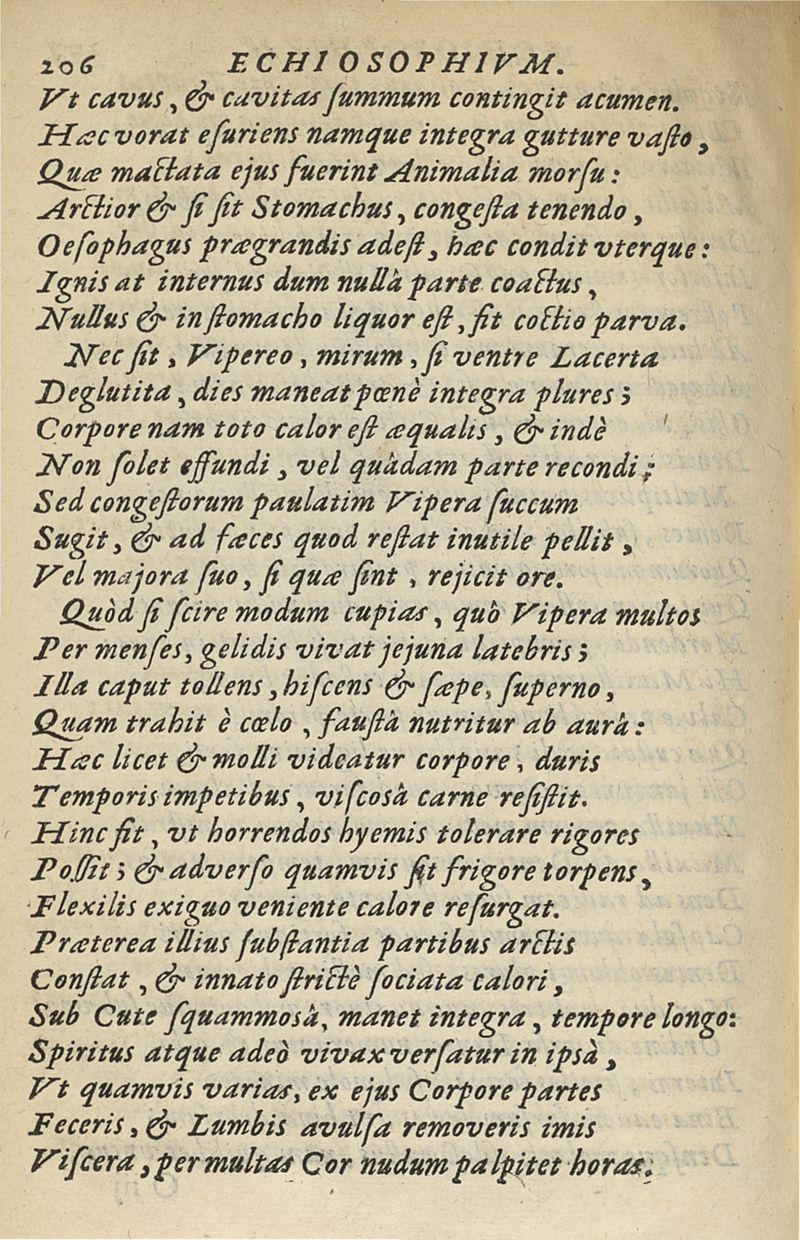 206 ECHIOSOPHIVM.
Vt cavus, & cavitas ſummum contingit acumen.
Hæc vorat eſuriens namque integra gutture vaſto,
Quæ mactata ejus fuerint Animalia morſu:
Arctior & ſi ſit Stomachus, congeſta tenendo,
Oeſophagus prægrandis adeſt, hæc condit vterque:
Ignis at internus dum nullà parte coactus,
Nullus & in ſtomacho liquor eſt, fit coctio parva.
Nec ſit, Vipereo, mirum, ſi ventre Lacerta
Deglutita, dies maneat pœnè integra plures;
Corpore nam toto calor eſt æqualis, & indè
Non ſolet effundi, vel quàdam parte recondi;
Sed congeſtorum paulatim Vipera ſuccum
Sugit, & ad fæces quod reſtat inutile pellit,
Vel majora ſuo, ſi quæ ſint, rejicit ore.
Quòd ſi ſcire modum cupias, quò Vipera multos
Per menſes, gelidis vivat jejuna latebris;
Illa caput tollens, hiſcens & ſæpe, ſuperno,
Quam trahit è cœlo, fauſtà nutritur ab aurà:
Hæc licet & molli videatur corpore, duris
Temporis impetibus, viſcosà carne reſiſtit.
Hinc fit, vt horrendos hyemis tolerare rigores
Poſſit; & adverſo quamvis ſit frigore torpens,
Flexilis exiguo veniente calore reſurgat.
Præterea illius ſubſtantia partibus arctis
Conſtat, & innato ſtrictè ſociata calori,
Sub Cute ſquammosà, manet integra, tempore longo:
Spiritus atque adeò vivax verſatur in ipsà,
Vt quamvis varias, ex ejus Corpore partes
Feceris, & Lumbis avulſa removeris imis
Viſcera, per multas Cor nudum palpitet horas.